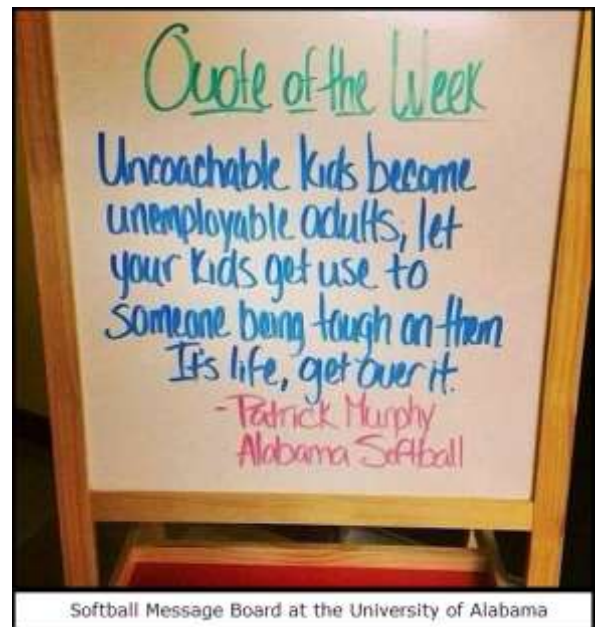 Quote of the Week
Uncoachable kids become
unemployable adults, let
your kids get use to
someone being tough on them
It's life, get over it.
-Patrick Murphy
Alabama Softball
Softball Message Board at the University of Alabama